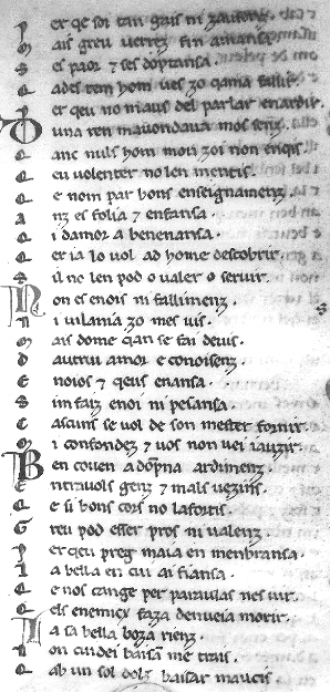 P er qe soi tan gais ni zauzens.
M ais greu verrez fin amansa.
S es paor 7 ses doptansa.
Q ades tem hom ues zo qama fallir.
P er qeu no maus del parlar enardir.
D una ren mauondaua mos senz.
Q anc nuls hom mon zoi non enqis.
Q eu uolenter no len mentis.
Q e nom par bons enseignamenz.
A nz es folia 7 enfansa.
Q i damor a benenansa.
Q er ia lo uol ad home descobrir.
S il no len pod o ualer o seruir.
N on es enois ni fallimenz.
N i uilania zo mes uis.
M ais dome qan se fai deuis.
D autrui amor e conoisenz.
E noios 7 qeus enansa.
S im faiz enoi ni pesansa.
C ascuns se uol de son mester fornir.
M i confondez 7 uos non uei iauzir.
B en couen a dompna ardimenz.
E ntrauols genz 7 mals uezins.
Q e si bons cors no lafortis.
G reu pod esser pros ni ualenz.
P er qeu preg maia en menbransa.
L a bella en cui ai fiansa.
Q e nos cange per paraulas nes uir.
Q els enemicx faza denueia morir.
I a sa bella boza rienz.
N on cuidei baisan me trais.
Q ab un sol dolz baisar maucis.